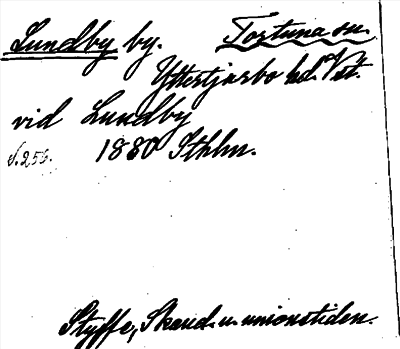 Lundby by. Tortuna sn.
Yttertjurbo hd. Vstm.
vid Lundby
S. 255. 1880 Sthlm.
Styffe, Skand. u. unionstiden.